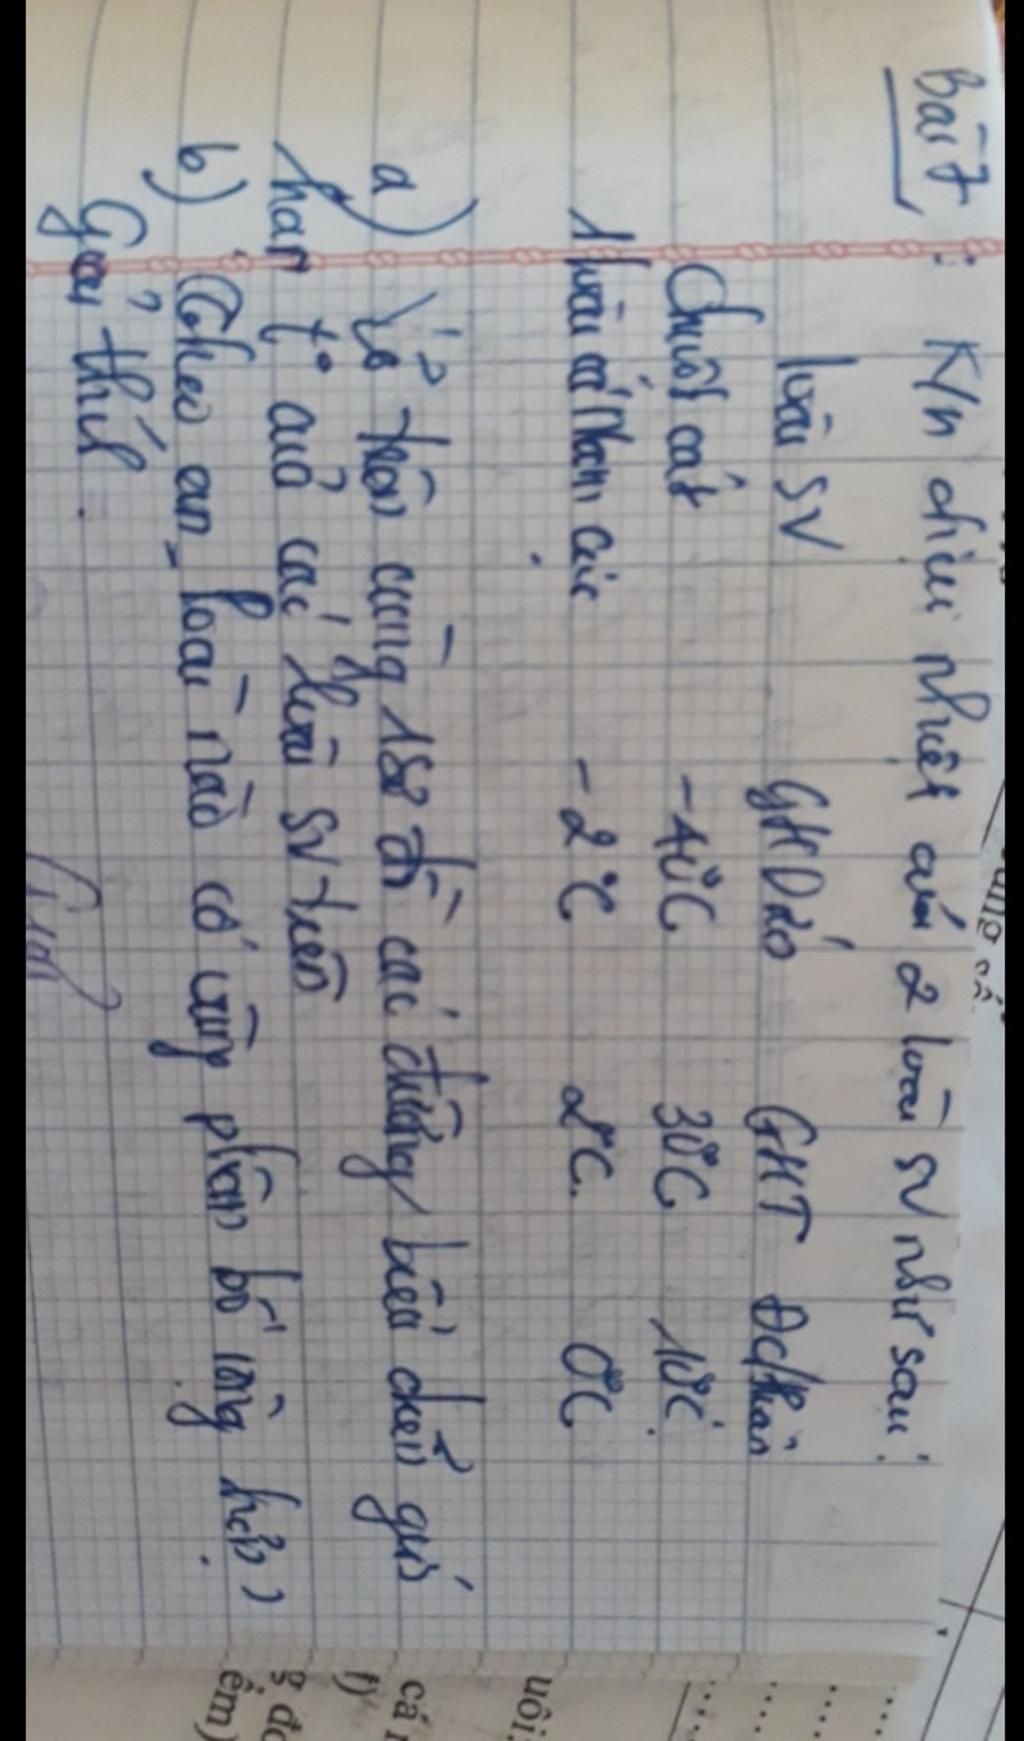 Bài 7: K/n chịu nhiệt của 2 loài SV như sau:
loài SV GHD áo GHT Đcthuần
Chuột cát -40°C 30°C 10°C.
1 loài cá Nam cực -2°C 2°C. 0°C
a) Vẽ trên cùng 1 sơ đồ các đường biểu diễn giới
hạn t° của các loài SV trên
b) Theo an loài nào có vùng phân bố rộng hơn?
Giải thích.
uôi.
cá n
1)
g đo
ếm)